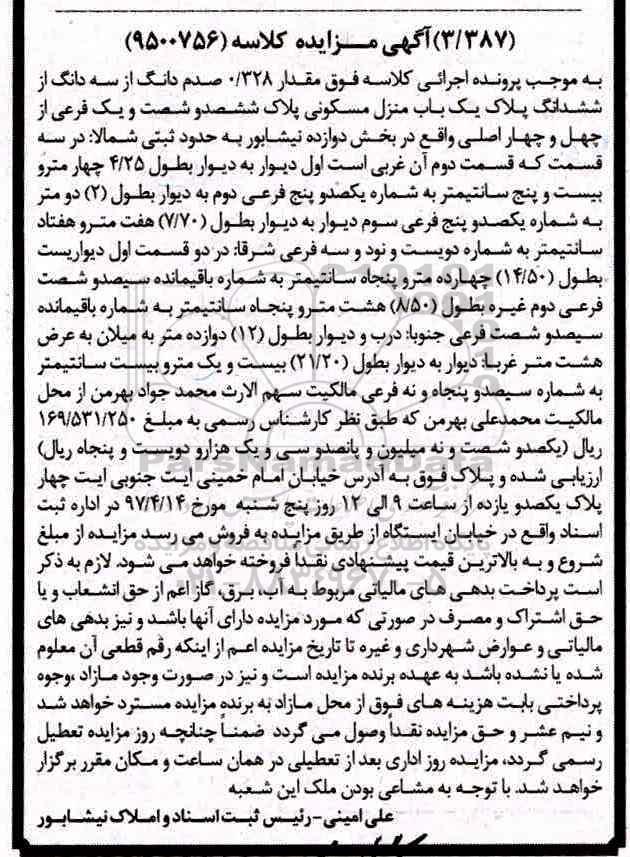 (۳/۳۸۷)آگهی مـــزایده کلاسه (۹۵۰۰۷۵۶)
به موجب پرونده اجرائی کلاسه فوق مقدار ۰/۳۲۸ صدم دانگ از سه دانگ از
ششدانگ پلاک یک باب منزل مسکونی پلاک ششصدو شصت و یک فرعی از
چهل و چهار اصلی واقع در بخش دوازده نیشابور به حدود ثبتی شمالا: در سه
قسمت که قسمت دوم آن غربی است اول دیوار به دیوار بطول ۴/۲۵ چهار مترو
بیست و پنج سانتیمتر به شماره یکصدو پنج فرعی دوم به دیوار بطول (۲) دو متر
به شماره یکصدو پنج فرعی سوم دیوار به دیوار بطول (۷/۷۰) هفت مترو هفتاد
سانتیمتر به شماره دویست و نود و سه فرعی شرقا: در دو قسمت اول دیواریست
بطول (۱۴/۵۰) چهارده مترو پنجاه سانتیمتر به شماره باقیمانده سیصدو شصت
فرعی دوم غیره بطول (۸/۵۰) هشت مترو پنجاه سانتیمتر به شماره باقیمانده
سیصدو شصت فرعی جنوبا: درب و دیوار بطول (۱۲) دوازده متر به میلان به عرض
هشت متر غربا: دیوار به دیوار بطول (۲۱/۲۰) بیست و یک مترو بیست سانتیمتر
به شماره سیصدو پنجاه و نه فرعی مالکیت سهم الارث محمد جواد بهرمن از محل
مالکیت محمدعلی بهرمن که طبق نظر کارشناس رسمی به مبلغ ۱۶۹/۵۳۱/۲۵۰
ریال (یکصدو شصت و نه میلیون و پانصدو سی و یک هزارو دویست و پنجاه ریال)
ارزیابی شده و پلاک فوق به آدرس خیابان امام خمینی ایت جنوبی ایت چهار
پلاک یکصدو یازده از ساعت ۹ الی ۱۲ روز پنج شنبه مورخ ۹۷/۴/۱۴ در اداره ثبت
اسناد واقع در خیابان ایستگاه از طریق مزایده به فروش می رسد مزایده از مبلغ
شروع و به بالاترین قیمت پیشنهادی نقداً فروخته خواهد می شود. لازم به ذکر
است پرداخت بدهی های مالیاتی مربوط به آب، برق، گاز اعم از حق انشعاب و یا
حق اشتراک و مصرف در صورتی که مورد مزایده دارای آنها باشد و نیز بدهی های
مالیاتی و عوارض شهرداری و غیره تا تاریخ مزایده اعم از اینکه رقم قطعی آن معلوم
شده یا نشده باشد به عهده برنده مزایده است و نیز در صورت وجود مازاد ،وجوه
پرداختی بابت هزینه های فوق از محل مازاد به برنده مزایده مسترد خواهد شد
و نیم عشر و حق مزایده نقداً وصول می گردد ضمناً چنانچه روز مزایده تعطیل
رسمی گردد، مزایده روز اداری بعد از تعطیلی در همان ساعت و مکان مقرر برگزار
خواهد شد. با توجه به مشاعی بودن ملک این شعبه
علی امینی-رئیس ثبت اسناد و املاک نیشابور